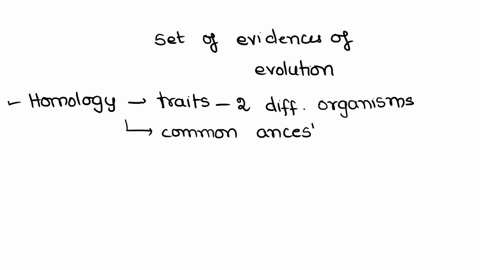 set of evidences of
evolution
- Homology → traits - 2 diff. organisms
↳ common ances'